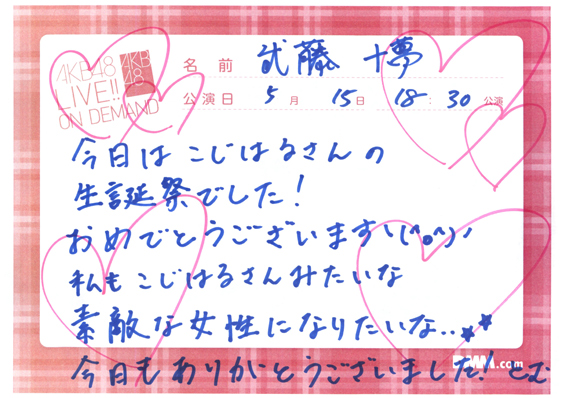 AKB48
LIVE!!
ON DEMAND
AKB
48
名前 武藤 十夢
公演日 5月 15日 18:30 公演
今日は こじはるさんの
生誕祭でした!
おめでとうございますヽ(^o^)ノ
私も こじはるさんみたいな
素敵な女性になりたいな..★★
今日も ありがとうございました! とむ
.com